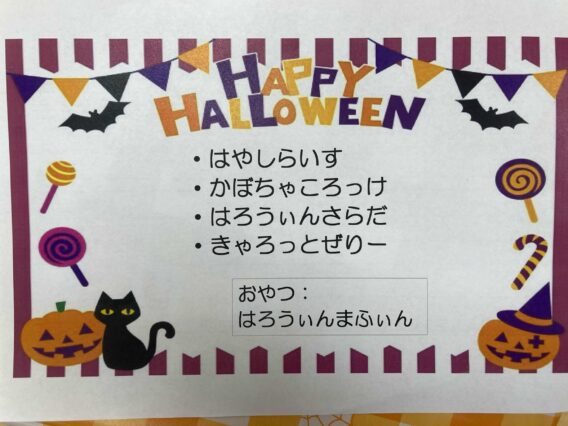 HAPPY
HALLOWEEN
・はやしらいす
・かぼちゃころっけ
・はろうぃんさらだ
・きゃろっとぜりー
おやつ：
はろうぃんまふぃん